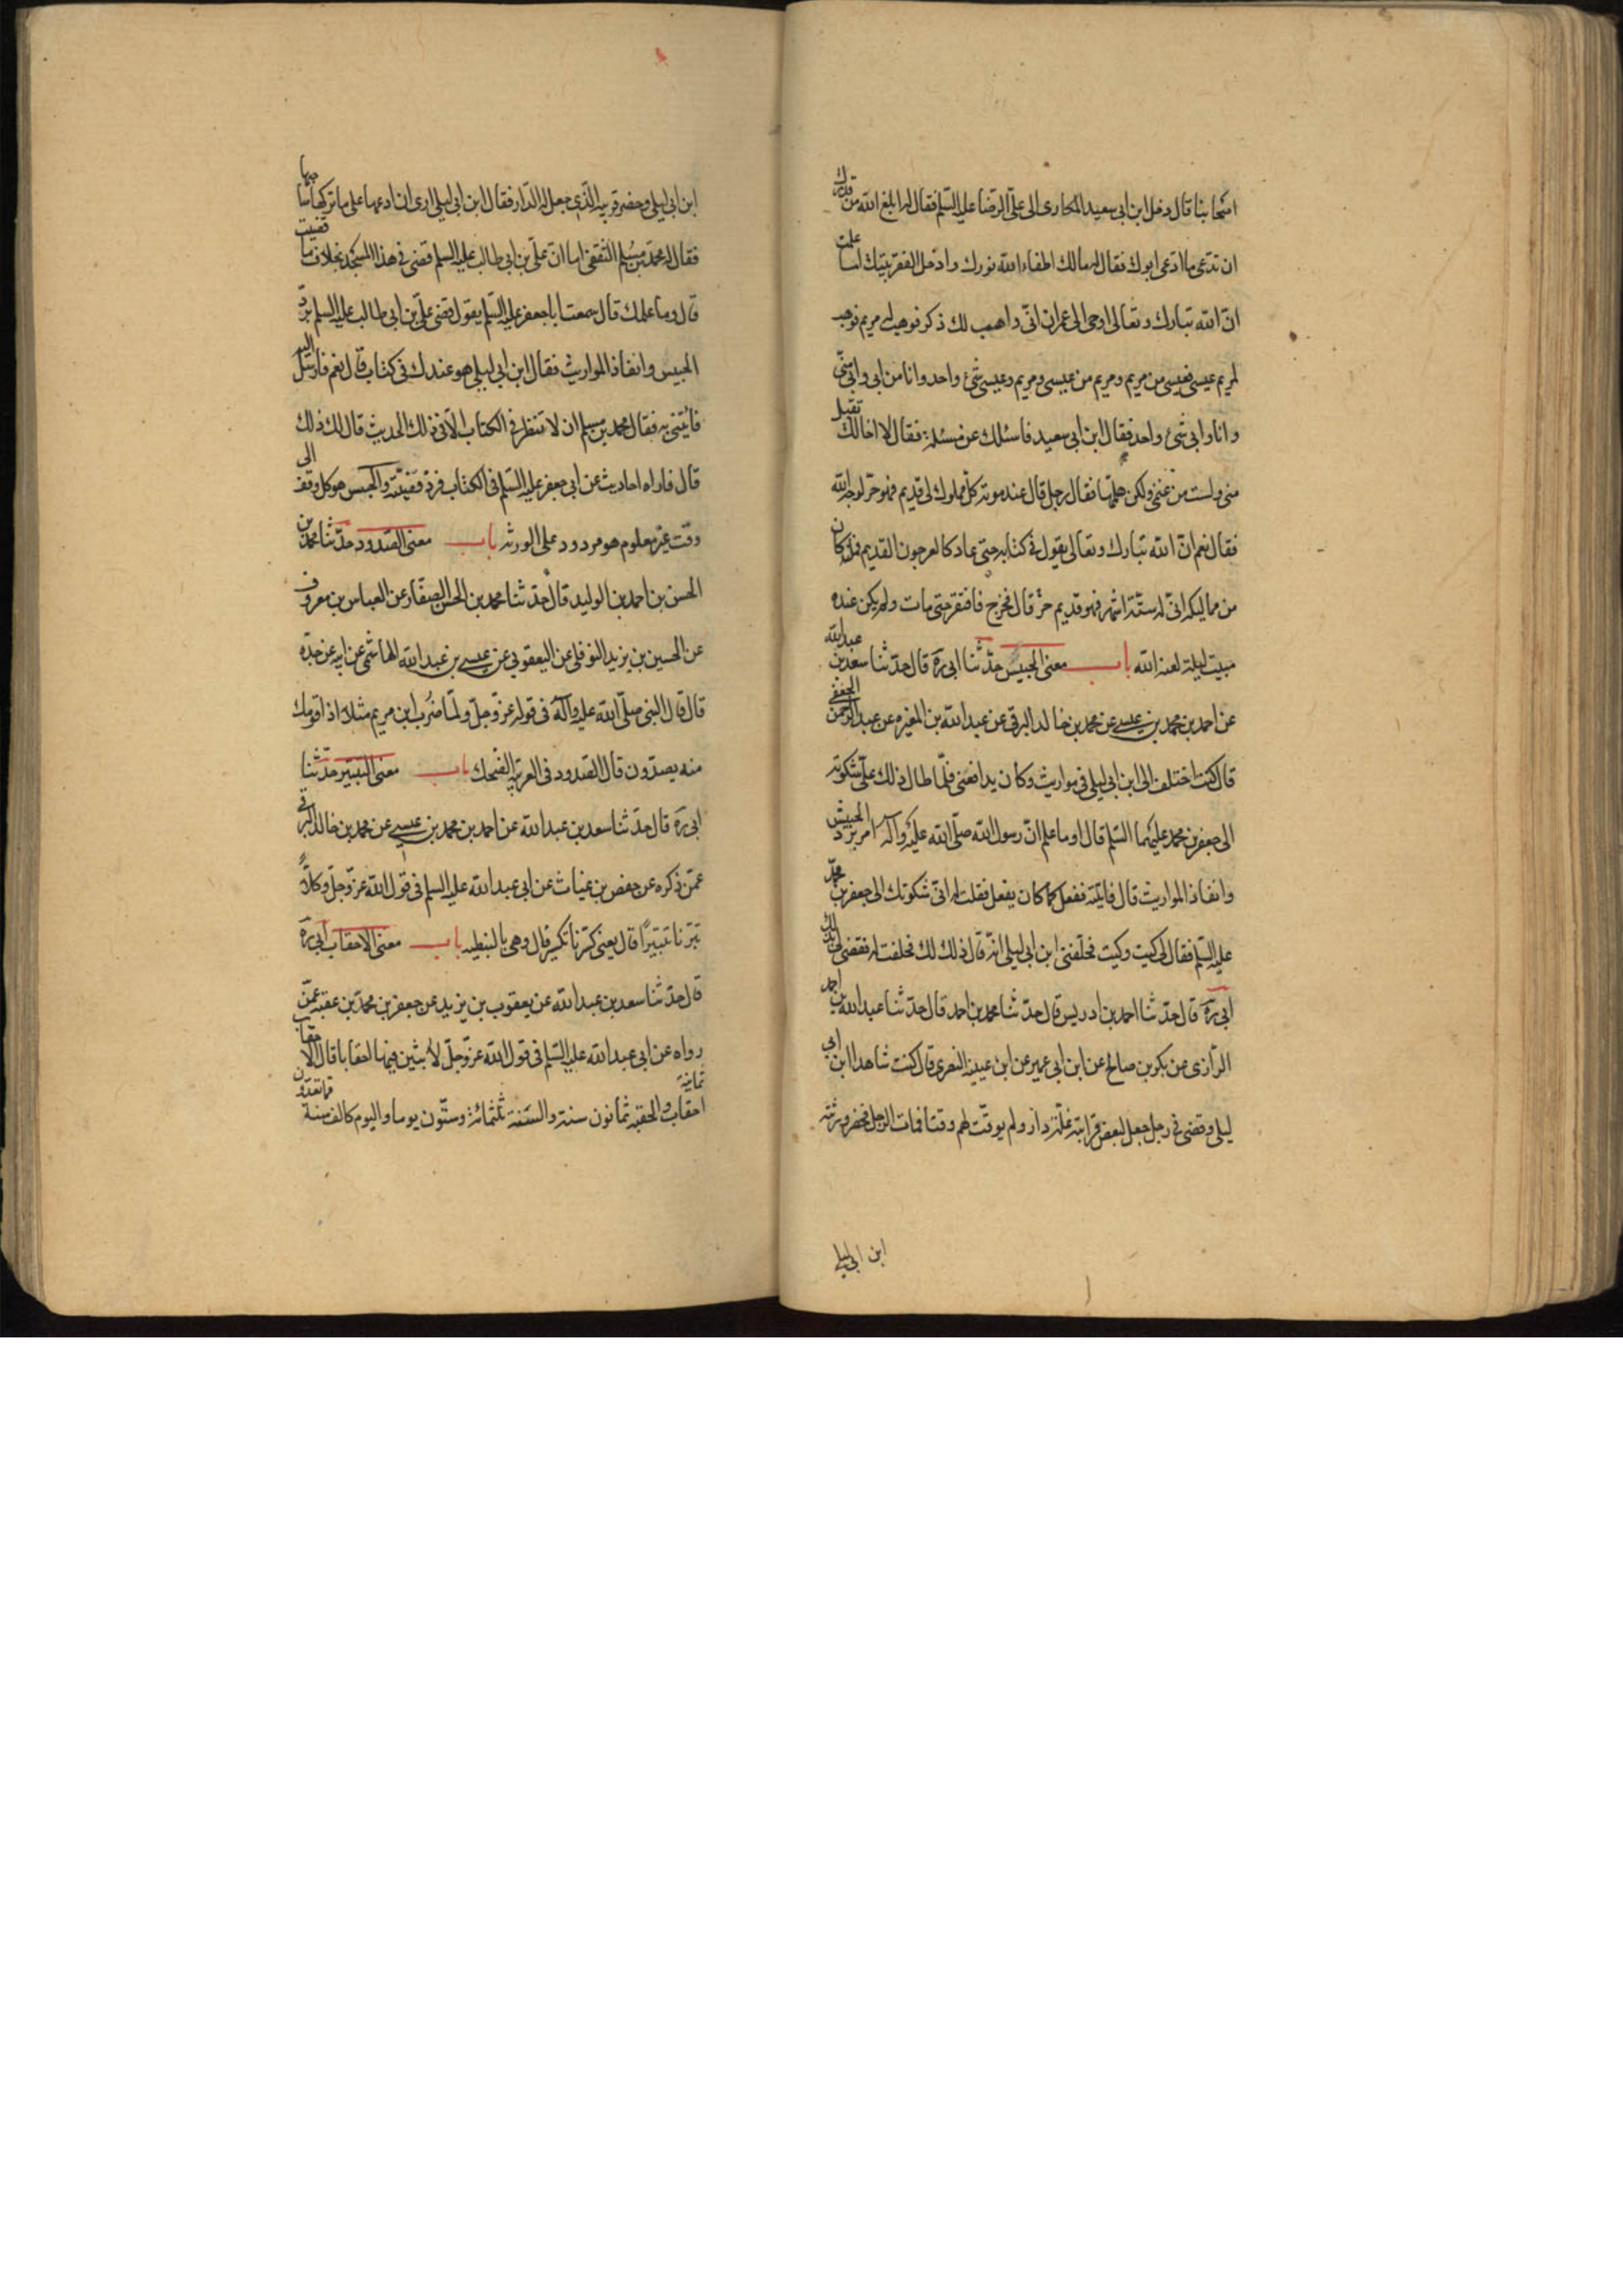 اصحابنا قال دخل ابن ابي سعيد المكاري الى علي الرضا عليه السلم فقال له ابلغ الله من قدرك
ان تدعي ما ادعى ابوك فقال له مالك اطفاء الله نورك وادخل الفقر بيتك اما علمت
ان الله تبارك وتعالى اوحى الى عمران اني واهب لك ذكر فوهب له مريم فوهب
لمريم عيسى فعيسى من مريم ومريم من عيسى ومريم وعيسى شئ واحد وانا من ابي وابي مني
وانا وابي شئ واحد فقال ابن ابي سعيد فاسئلك عن مسئلة فقال لا اخالك تقبل
مني ولست من غنمي ولكن هلمها فقال رجل قال عند موته كل مملوك لي قديم فهو حر لوجه الله
فقال نعم ان الله تبارك وتعالى يقول في كتابه حتى عاد كالعرجون القديم فما كان
من مماليكه اتى له ستة اشهر فهو قديم حر قال فخرج فافتقر حتى مات ولم يكن عنده
مبيت ليلة لعنه الله باب معنى الحبيس حدثنا ابي ره قال حدثنا سعد بن عبد الله
عن احمد بن محمد بن عيسى عن محمد بن خالد البرقي عن عبد الله بن المغيره عن عبد الرحمن الجعفي
قال كنت اختلف الى ابن ابي ليلى في مواريث وكان يدافعني فلما طال ذلك علي شكوته
الى جعفر بن محمد عليهما السلم قال اوما علم ان رسول الله صلى الله عليه وآله امر برد الحبيس
وانفاذ المواريث قال فاتيته ففعل كما كان يفعل فقلت له اني شكوتك الى جعفر بن محمد
عليه السلم فقال لي كيت وكيت فحلفني ابن ابي ليلى انه قال ذلك لك فحلفت له فقضى لي بذلك
ابي ره قال حدثنا احمد بن ادريس قال حدثنا محمد بن احمد قال حدثنا عبد الله بن احمد
الرازي عن بكر بن صالح عن ابن ابي عمير عن ابن عيينه البصري قال كنت شاهدا ابن ابي
ليلى وقضى في رجل جعل لبعض قرابته غلة دار ولم يوقت لهم وقتا فمات الرجل فحضر ورثته
ابن ابي ليلى
ابن ابي ليلى وحضر قريبه الذي جعل له الدار فقال ابن ابي ليلى ارى ان ادعها على ما تركها صاحبها
فقال له محمد بن مسلم الثقفي اما ان علي بن ابي طالب عليه السلم قضى في هذا المسجد بخلاف ما قضيت
قال وما علمك قال سمعت ابا جعفر عليه السلم يقول قضى علي بن ابي طالب عليه السلم برد
الحبيس وانفاذ المواريث فقال ابن ابي ليلى هو عندك في كتاب قال نعم فارسل اليه
فائتني به فقال محمد بن مسلم ان لا تنظر في الكتاب الا في ذلك الحديث قال لك ذلك
قال فاراه احاديث عن ابي جعفر عليه السلم في الكتاب فرد قضيته والحبس هو كل وقف الى
وقت غير معلوم هو مردود على الورثه باب معنى الصدود حدثنا محمد بن
الحسن بن احمد بن الوليد قال حدثنا محمد بن الحسن الصفار عن العباس بن معروف
عن الحسين بن يزيد النوفلي عن اليعقوبي عن عيسى بن عبد الله الهاشمي عن ابيه عن جده
قال قال النبي صلى الله عليه وآله في قوله عز وجل ولما ضرب ابن مريم مثلا اذا قومك
منه يصدون قال الصدود في العربية الضحك باب معنى التتبير حدثنا
ابي ره قال حدثنا سعد بن عبد الله عن احمد بن محمد بن عيسى عن محمد بن خالد البرقي
عمن ذكره عن حفص بن غياث عن ابي عبد الله عليه السلم في قول الله عز وجل وكلا
تبرنا تتبيرا قال يعني كسرنا تكسير قال وهي بالنبطيه باب معنى الاحقاب ابي ره
قال حدثنا سعد بن عبد الله عن يعقوب بن يزيد عن جعفر بن محمد بن عقبه عمن
رواه عن ابي عبد الله عليه السلم في قول الله عز وجل لابثين فيها احقابا قال الاحقاب ثمانية
احقاب والحقبة ثمانون سنة والسنة ثلثمائة وستون يوما واليوم كالف سنة مما تعدون